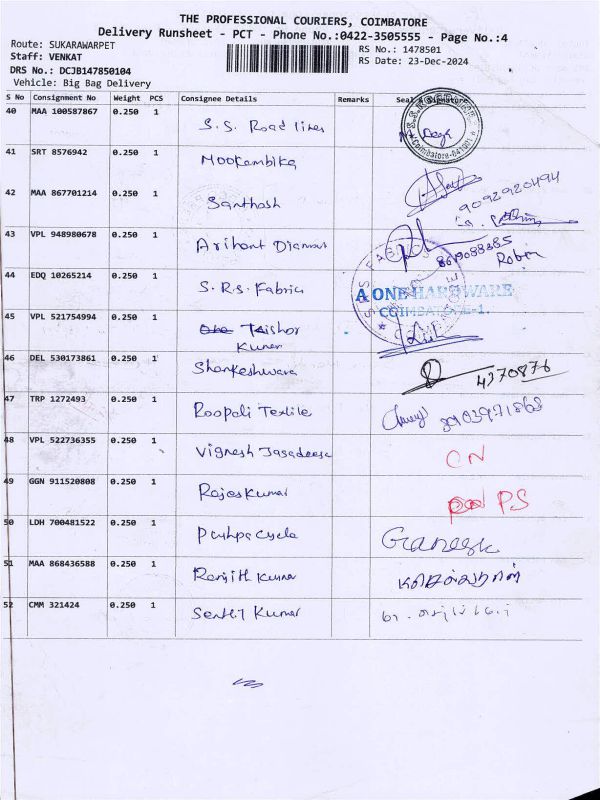 THE PROFESSIONAL COURIERS, COIMBATORE
Delivery Runsheet - PCT - Phone No.:0422-3505555 - Page No.:4
Route: SUKARAWARPET
RS No.: 1478501
Staff: VENKAT
RS Date: 23-Dec-2024
DRS No.: DCJB147850104
Vehicle: Big Bag Delivery
S No Consignment No Weight PCS Consignee Details Remarks Seal & Signature
40 MAA 100587867 0.250 1 S.S. Road lines
Coimbatore-641001
41 SRT 8576942 0.250 1 Mookambika
42 MAA 867701214 0.250 1 Santhosh 9092920494
43 VPL 948980678 0.250 1 Arihant
8619088385 Robin
44 EDQ 10265214 0.250 1 S.R.S. Fabrics
S.R.S FABRICS
A ONE HARDWARE
COIMBATORE-1.
45 VPL 521754994 0.250 1 Kishor
Kumar
46 DEL 530173861 0.250 1 Shankeshwara 4370876
47 TRP 1272493 0.250 1 Roopali Textile
48 VPL 522736355 0.250 1 Vignesh Jagadeesa CN
49 GGN 911520808 0.250 1 Rajeskumar PS
50 LDH 700481522 0.250 1 Pushpa cycle Ganesh
51 MAA 868436588 0.250 1 Ranjith Kumar
52 CMM 321424 0.250 1 Senthil Kumar